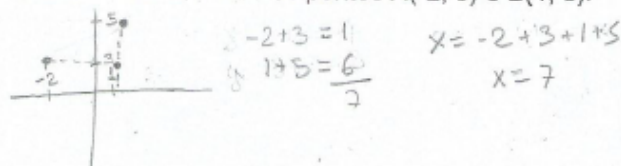 5
-2
-2+3=1
1+5=6
7
x=-2+3+1+5
x=7